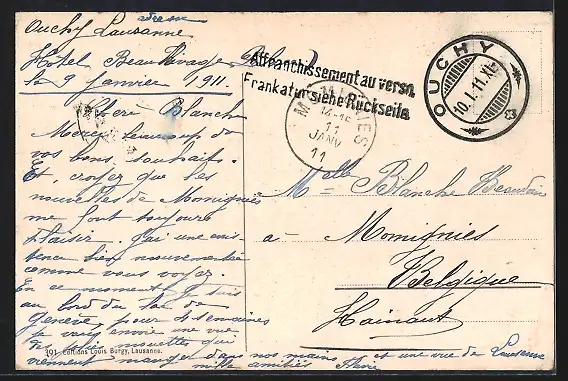 Ouchy Lausanne
Hôtel Beau Rivage
le 9 Janvier 1911.
Chère Blanche
Merci beaucoup de
vos bons souhaits.
Et, croyez que les
nouvelles de Momignies
me font toujours
plaisir. J'ai une exis-
tence bien mouvementée
comme vous voyez.
En ce moment je suis
au bord du lac de
Genève pour 4 semaines
je vous envoie une vue
des jolies mouettes qui
viennent manger dans nos mains et une vue de Lausanne
mille amitiés
391 Editions Louis Burgy, Lausanne.
Affranchissement au verso.
Frankatur siehe Rückseite.
MOMIGNIES
11
JANV
11
OUCHY
10.I.11.XI-
Melle Blanche Beaudoin
a- Momignies
Belgique
Hainaut